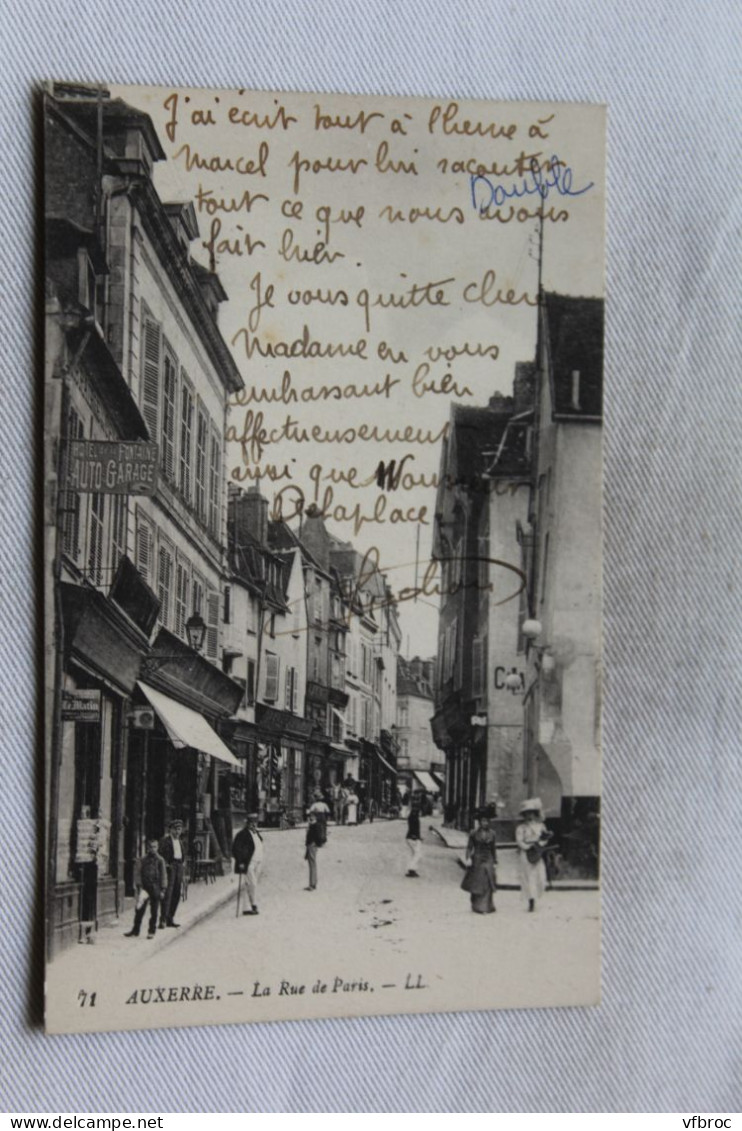 J'ai écrit tout à l'heure à
Marcel pour lui raconter
Double
tout ce que nous avons
fait hier.
Je vous quitte chère
Madame en vous
embrassant bien
affectueusement
ainsi que Mons
Delaplace
HOTEL DE LA FONTAINE
AUTO GARAGE
Le Matin
71 AUXERRE. — La Rue de Paris. — LL.
vfbroc